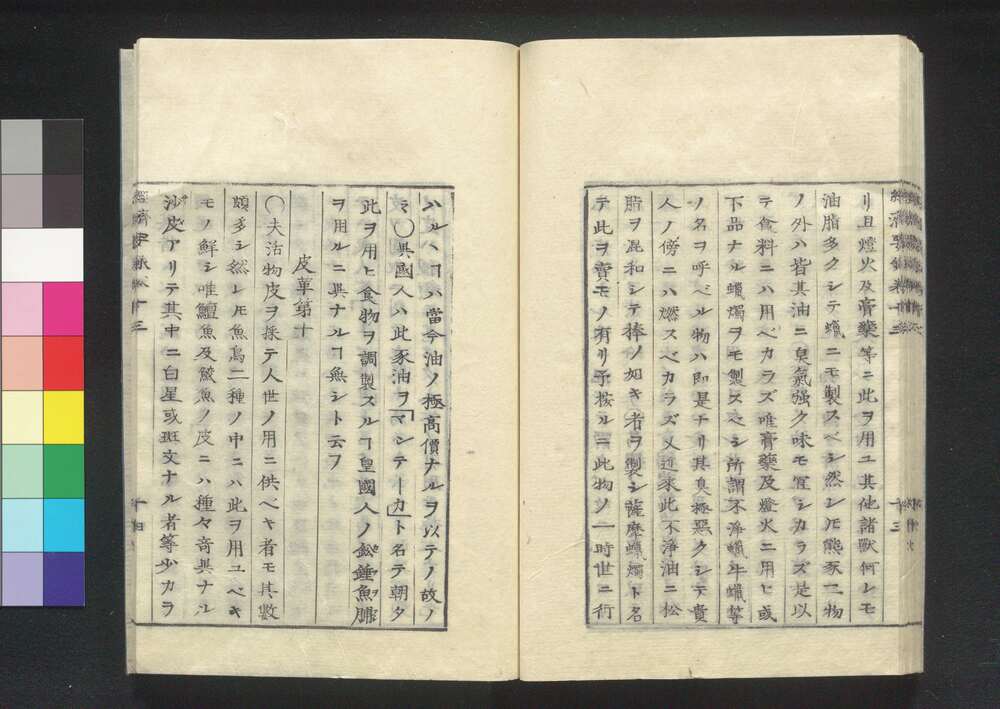 リ且燈火及膏藥等ニ此ヲ用ユ其他諸獸何レモ
油脂多クシテ蠟ニモ製スベシ然シㇶモ熊豕二物
ノ外ハ皆其油ニ臭氣强ク味モ宜シカラズ是以
テ食料ニハ用ベカラズ唯膏藥及燈火ニ用ヒ或
下品ナル蠟燭ヲモ製スベシ所謂不淨蠟牛蠟等
ノ名ヲ呼ベル物ハ即是ナリ其臭極惡クシテ貴
人ノ傍ニハ燃スベカラズ又近來此不淨油ニ松
脂ヲ混和シテ捧ノ如キ者ヲ製シ薩摩蠟燭ト名
テ此ヲ賣モノ有リ予按ルニ此物ノ一時世ニ行
ハルヽヿハ當今油ノ極高價ナルヲ以テノ故ノ
ミ〇異國人ハ此豕油ヲ「マンテーカ」ト名テ朝夕
此ヲ用ヒ食物ヲ調製スルヿ皇國人ノ鬆鍾魚脯
ヲ用ルニ異ナルヿ無シト云フ
皮革第十
〇夫活物皮ヲ採テ人世ノ用ニ供ベキ者モ其數
頗多シ然レㇶモ魚鳥二種ノ中ニハ此ヲ用ユベキ
モノ鮮シ唯鱣魚及鮫魚ノ皮ニハ種々奇異ナル
沙皮アリテ其中ニ白星或斑文ナル者等少カラ